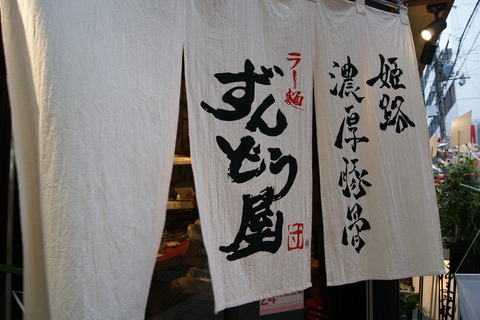 姫路
濃厚豚骨
ラー麺
ずんどう屋
団
24